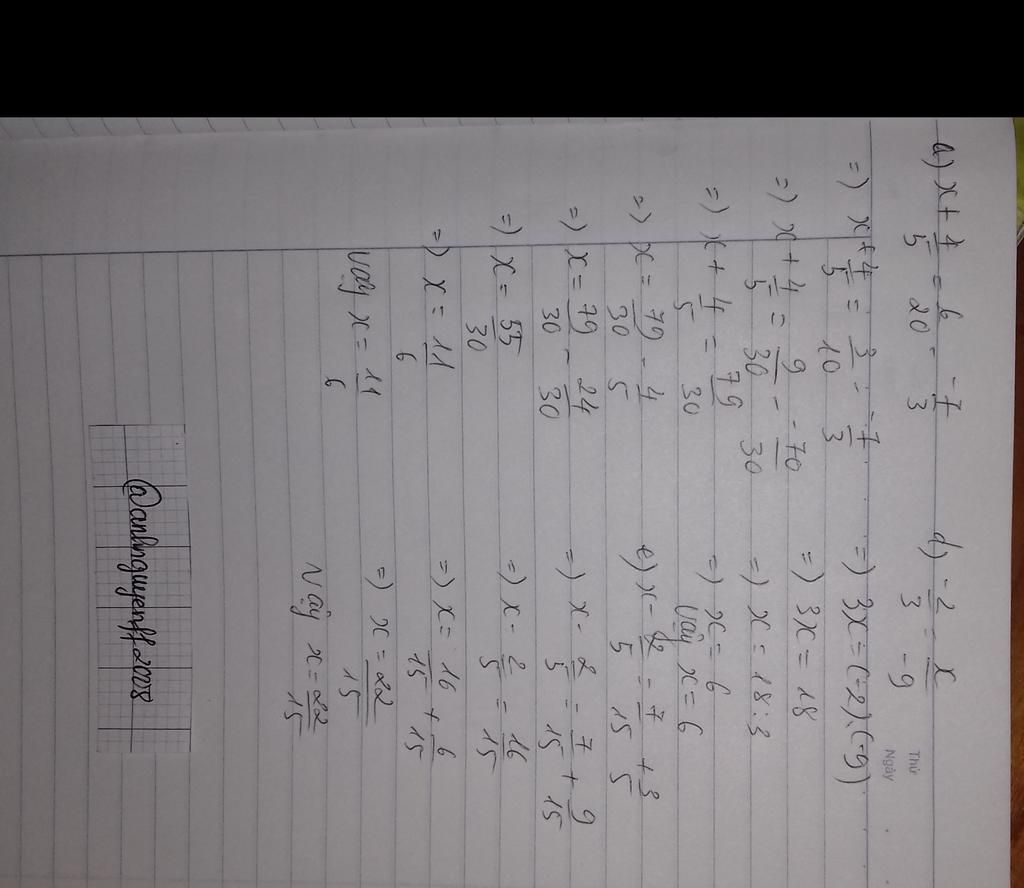 a) x + 4/5 = 6/20 - -7/3
=) x + 4/5 = 3/10 - -7/3
=) x + 4/5 = 9/30 - -70/30
=) x + 4/5 = 79/30
=) x = 79/30 - 4/5
=) x = 79/30 - 24/30
=) x = 55/30
=) x = 11/6
Vậy x = 11/6
Thứ
Ngày
d) -2/3 = x/-9
=) 3x = (-2).(-9)
=) 3x = 18
=) x = 18:3
=) x = 6
Vậy x = 6
e) x - 2/5 = 7/15 + 3/5
=) x - 2/5 = 7/15 + 9/15
=) x - 2/5 = 16/15
=) x = 16/15 + 6/15
=) x = 22/15
Vậy x = 22/15
@anhnguyenff2008